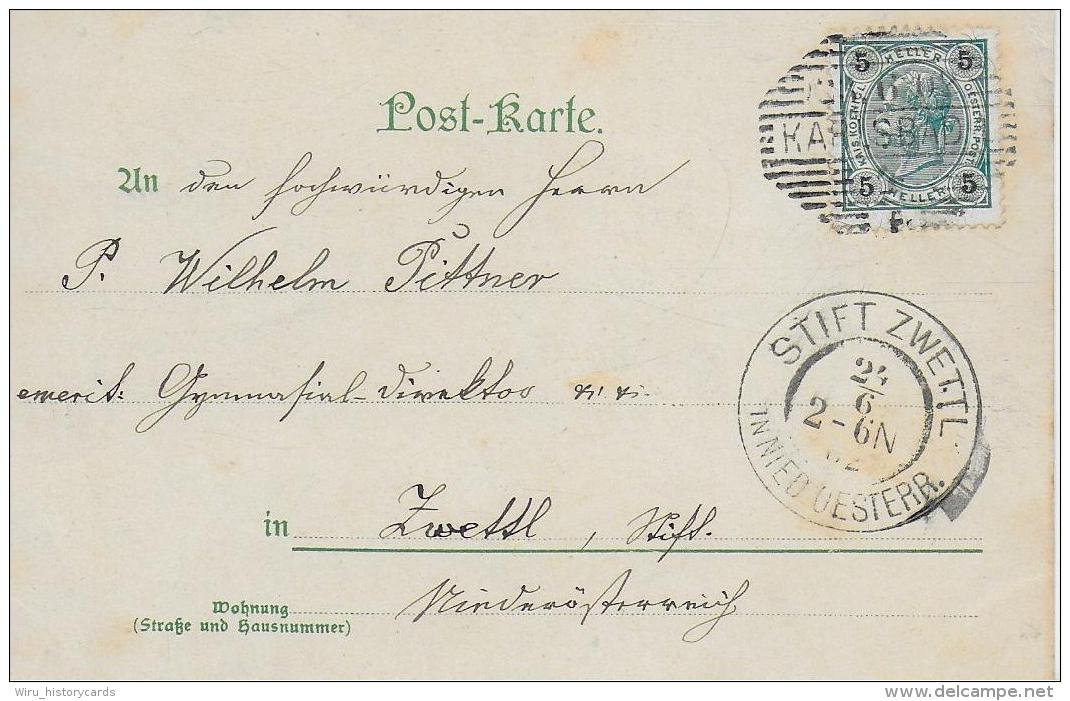 Post-Karte.
5 HELLER 5
KAIS. KOENIGL. OESTERR. POST
5 HELLER 5
An den hochwürdigen Herrn
P. Wilhelm Pittner
emerit: Gymnasial-Direktor
STIFT ZWETTL
6
2-6N
02
IN NIED. OESTERR.
in Zwettl, Stift.
Niederösterreich
Wohnung
(Straße und Hausnummer)
Wiru_historycards
delcampe.net